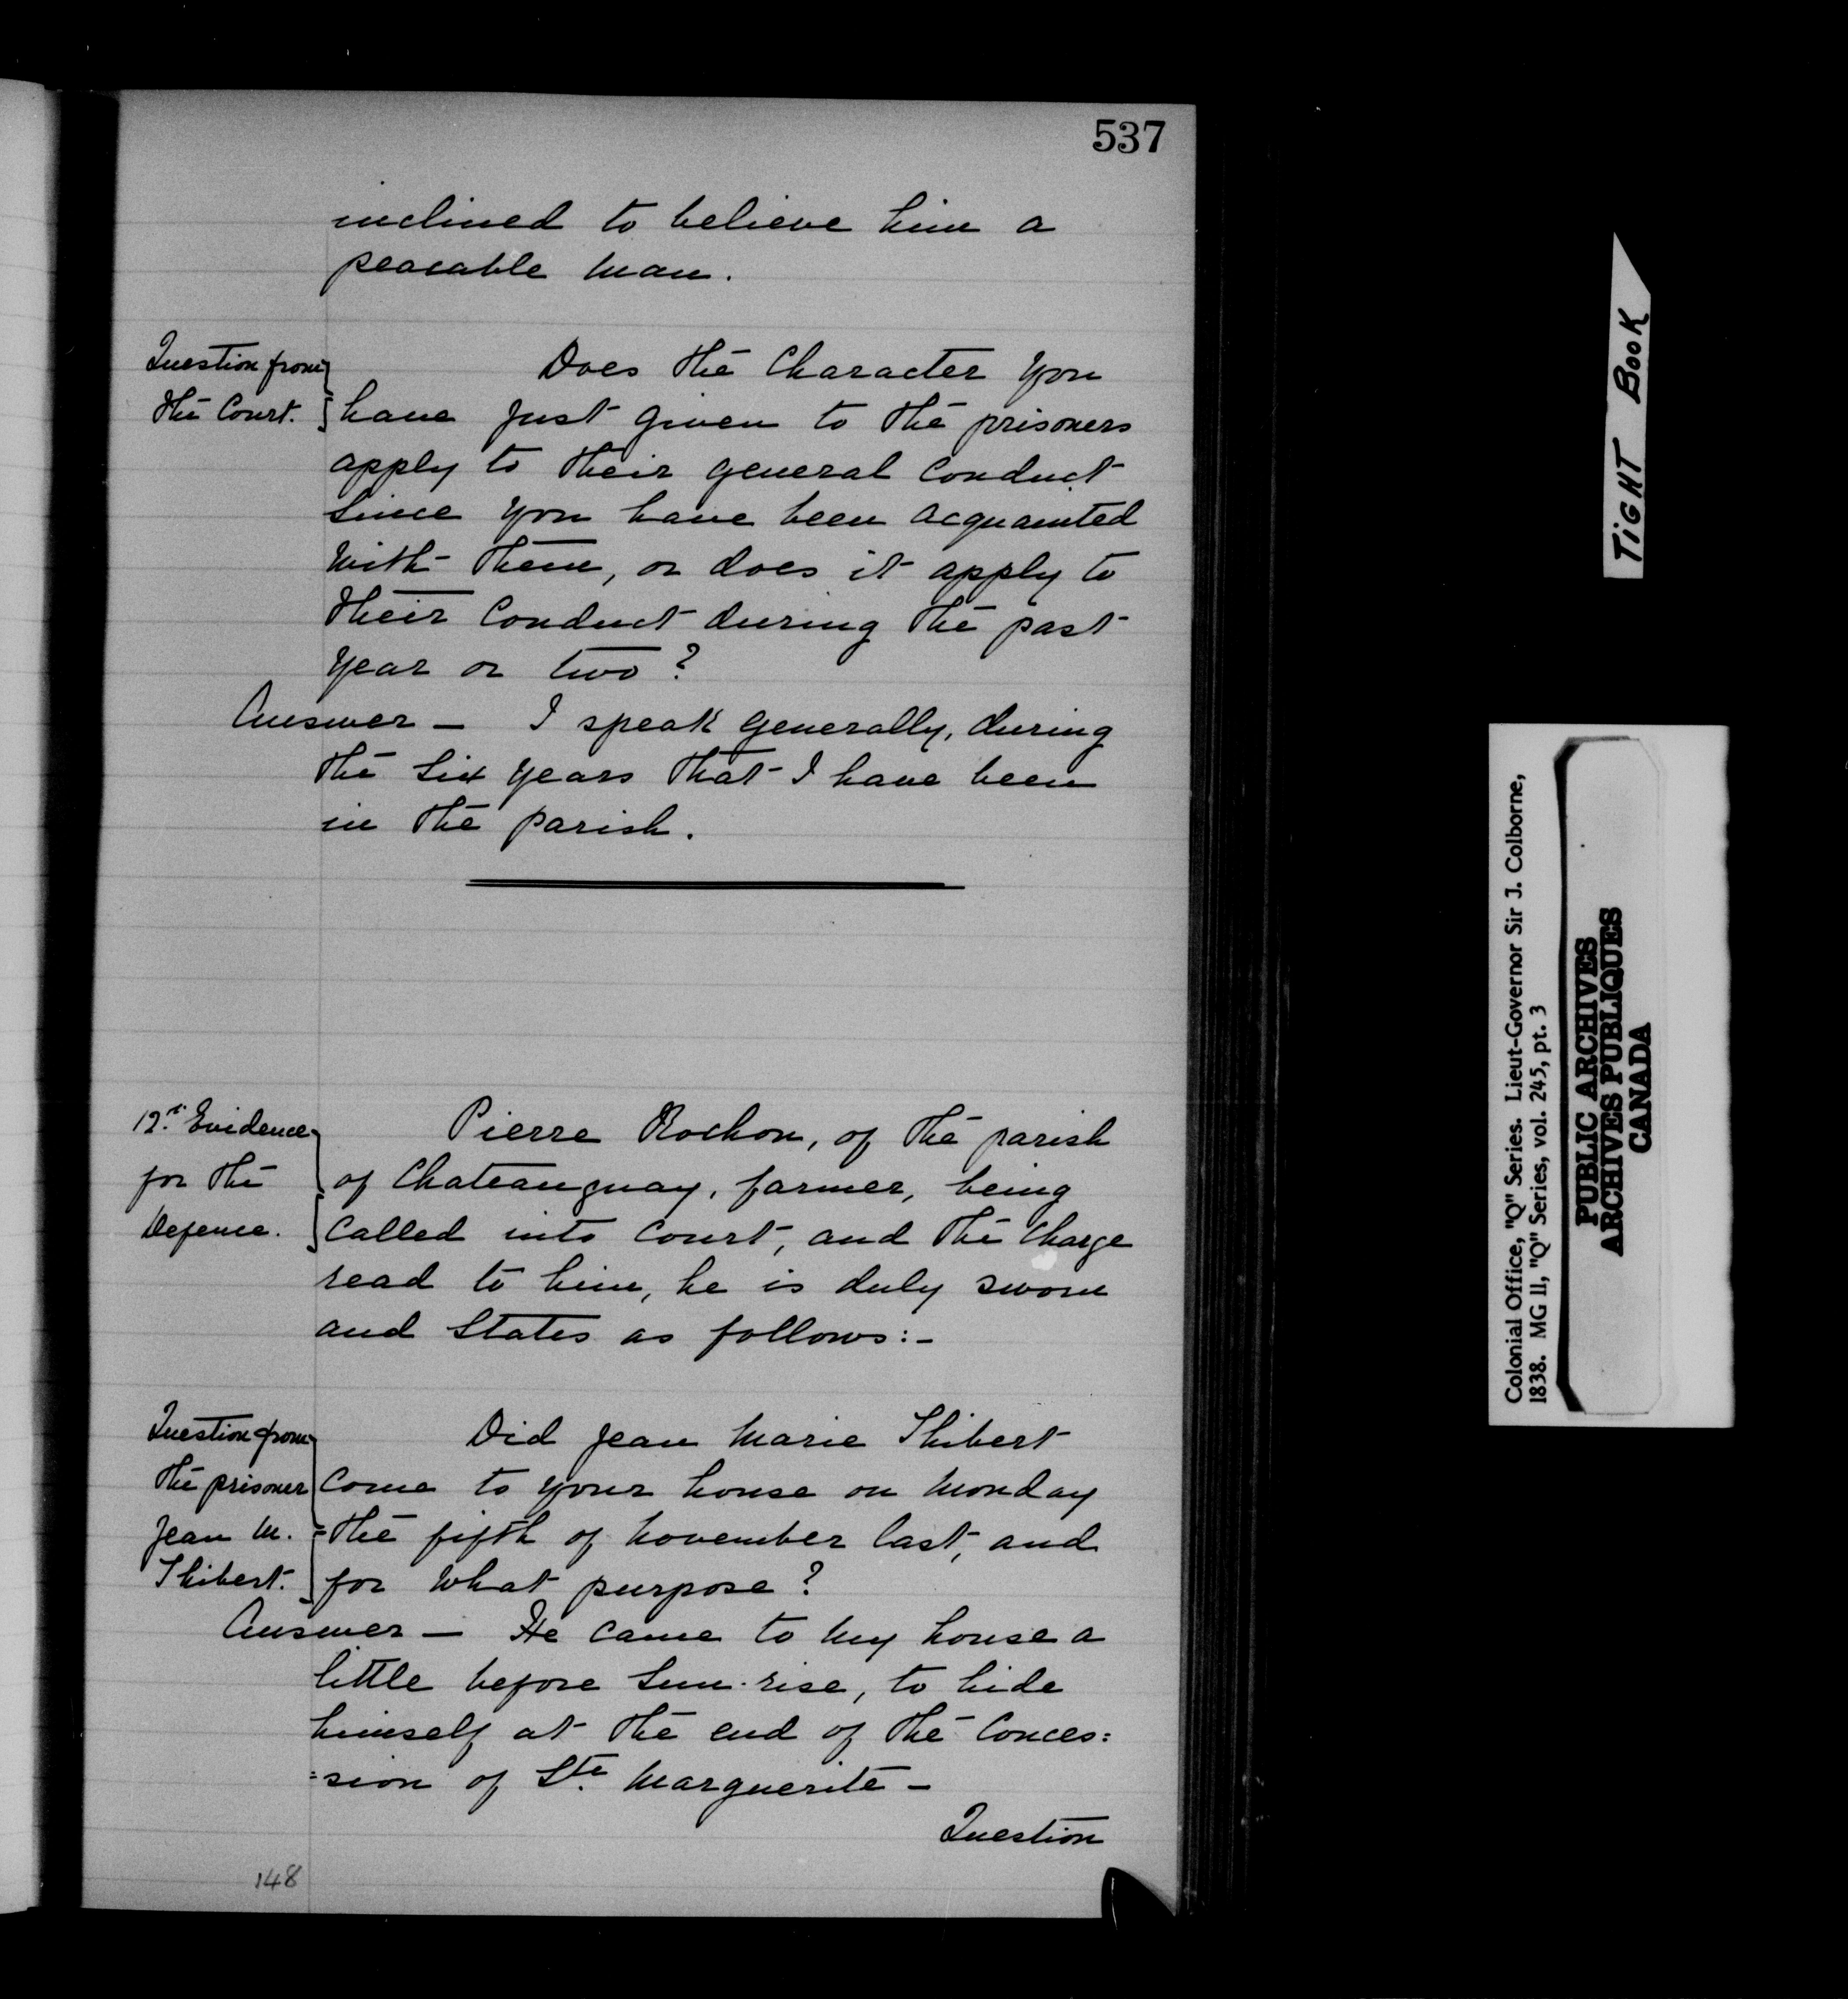 537
inclined to believe him a
peacable man.
Question from
the Court.
Does the Character you
have just given to the prisoners
apply to their general conduct
since you have been acquainted
with them, or does it apply to
their Conduct during the past
year or two?
Answer — I speak generally, during
the six years that I have been
in the parish.
12th Evidence
for the
Defence.
Pierre Rochon, of the parish
of Chateauguay, farmer, being
called into Court, and the charge
read to him, he is duly sworn
and States as follows:-
Question from
the prisoner
Jean M.
Thibert.
Did Jean Marie Thibert
come to your house on Monday
the fifth of November last, and
for what purpose?
Answer — He came to my house a
little before sun-rise, to hide
himself at the end of the Conces=
=sion of Ste Marguerite —
Question
148
TiGHT BOOK
Colonial Office, "Q" Series. Lieut-Governor Sir J. Colborne,
1838. MG II, "Q" Series, vol. 245, pt. 3
PUBLIC ARCHIVES
ARCHIVES PUBLIQUES
CANADA